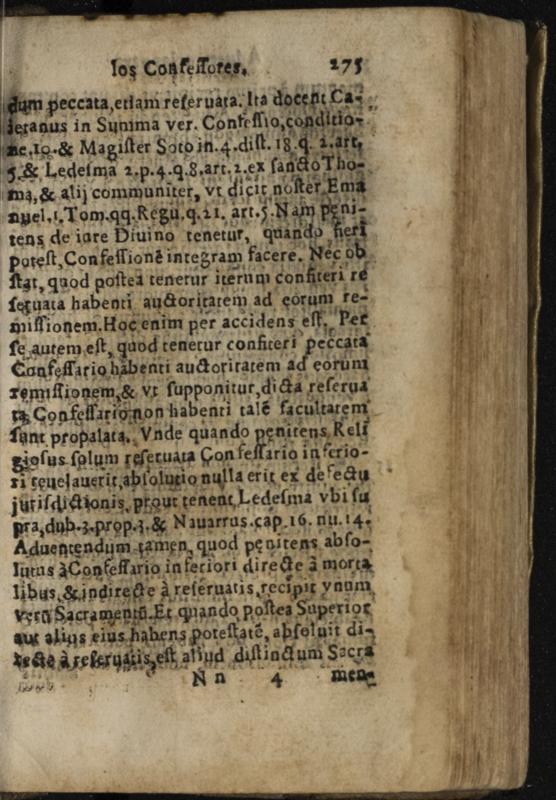 los Confessores. 275
dum peccata, etiam reseruata. Ita docent Ca-
ietanus in Summa ver. Confessio, conditio-
ne. 10. & Magister Soto in. 4. dist. 18. q. 2. art.
5. & Ledesma 2. p. 4. q. 8. art. 2. ex sancto Tho-
ma, & alij communiter, vt dicit noster Ema
nuel. 1. Tom. qq. Regu. q. 21. art. 5. Nam peni-
tens de iure Diuino tenetur, quando fieri
potest, Confessionē integram facere. Nec ob
stat, quod postea tenetur iterum confiteri re
seruata habenti auctoritatem ad eorum re-
missionem. Hoc enim per accidens est. Per
se autem est, quod tenetur confiteri peccata
Confessario habenti auctoritatem ad eorum
remissionem, & vt supponitur, dicta reserua
ta Confessario non habenti talē facultatem
sunt propalata. Vnde quando penitens Reli
giosus solum reseruata Confessario inferio-
ri reuelauerit, absolutio nulla erit ex defectu
jurisdictionis, prout tenent Ledesma vbi su
pra, dub. 3. prop. 3. & Nauarrus. cap. 16. nu. 14.
Aduertendum tamen, quod penitens abso-
lutus à Confessario inferiori directe à morta
libus, & indirecte à reseruatis, recipit vnum
verū Sacramentū. Et quando postea Superior
aut alius eius habens potestatē, absoluit di-
recte à reseruatis, est aliud distinctum Sacra
N n 4 men-